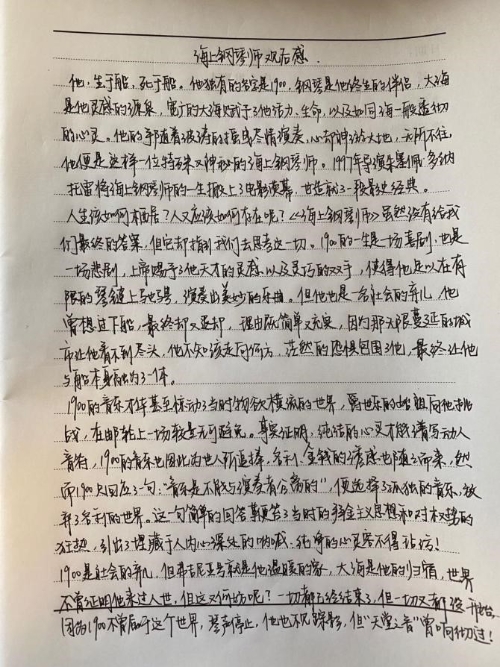 海上钢琴师观后感.
他，生于船，死于船。他独有的名字是1900，钢琴是他终生的伴侣，大海
是他灵感的源泉，宽广的大海赋予了他活力、生命，以及如同海一般透彻
的心灵。他的手随着波涛的摇晃尽情演奏，心却神游大地，无所不往
他便是这样一位特殊又神秘的海上钢琴师。1997年导演朱塞佩·多纳
托雷将海上钢琴师的一生搬上了电影荧幕，也造就了一段影史经典。
人生该如何栖居？人又应该如何存在呢？《海上钢琴师》虽然没有给我
们最终的答案，但它却指引我们去思考这一切。1900的一生是一场喜剧，也是
一场悲剧，上帝赐予了他天才的灵感以及灵巧的双手，使得他足以在有
限的琴键上奏出，演奏出美妙的乐曲。但他也是一名社会的弃儿，他
曾想过下船，最终却又退却，理由既简单又充实，因为那无限蔓延的城
市让他看不到尽头，他不知该走向何方，茫然的恐惧包围了他，最终让他
与船本身融为了一体。
1900的音乐不仅甚至惊动了当时物欲横流的世界，爵士乐的鼻祖向他挑
战，在邮轮上一场较量无可避免。事实证明，纯洁的心灵才能谱写动人
音符，1900的音乐也因此为世人所追捧，名利、金钱的诱惑也随之而来，然
而1900只回应了一句：“音乐是不能与演奏者分离的”，便选择了孤独的音乐，放
弃了名利的世界。这一句简单的回答直击了当时的拜金主义思想和对权势的
狂热，引出了埋藏于人内心深处的呐喊：纯净的心灵容不得玷污！
1900是社会的弃儿，但弗吉尼亚号就是他温暖的家，大海是他的归宿，世界
不曾证明他来过人世，但这又何妨呢？一切都已经结束了，但一切又都没开始，
因为1900不曾属于这个世界，琴声停止，他也不见踪影，但“天堂之音”曾响彻过！